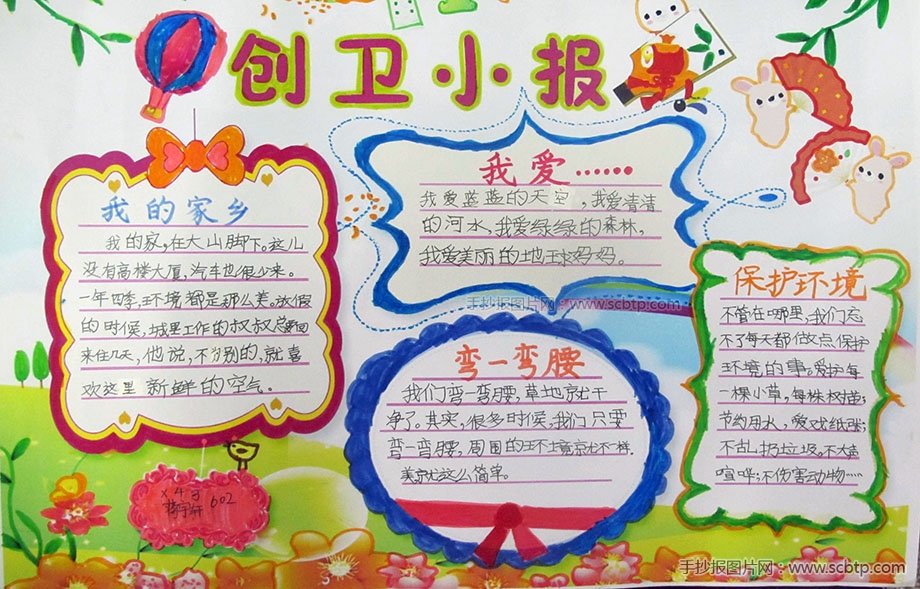 创卫小报
我的家乡
我的家,在大山脚下。这儿
没有高楼大厦,汽车也很少来。
一年四季,环境都是那么美。放假
的时候,城里工作的叔叔总要回
来住几天,他说,不为别的,就喜
欢这里新鲜的空气。
我爱……
我爱蓝蓝的天空,我爱清清
的河水,我爱绿绿的森林,
我爱美丽的地球妈妈。
手抄报图片网:www.scbtp.com
弯一弯腰
我们弯一弯腰,草地就干
净了。其实,很多时候,我们只要
弯一弯腰,周围的环境就不一样。
美就这么简单。
保护环境
不管在哪里,我们忘
不了每天都做点保护
环境的事。爱护每
一棵小草,每株树苗;
节约用水,爱戏纸张;
不乱扔垃圾,不大声
喧哗;不伤害动物……
602
手抄报图片网:www.scbtp.com